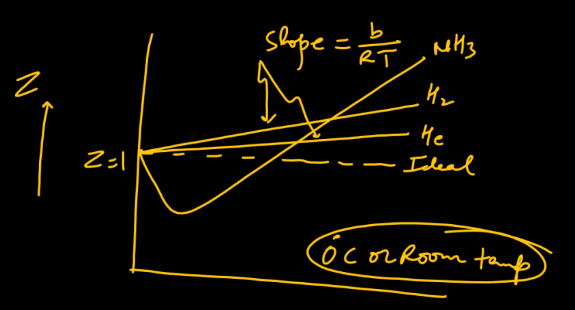 Slope = b/RT
NH3
Z
H2
He
Z=1
Ideal
0°C or Room temp